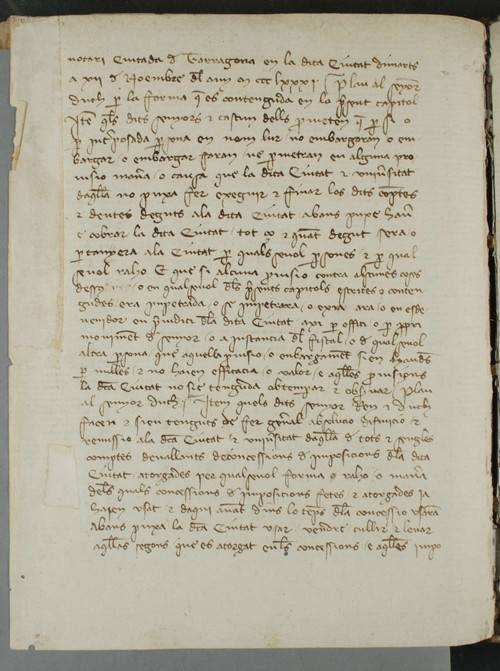 notari Ciutada d Tarragona en la dita Ciutat dimarts
a xii d Noembre dl any m ccc lxxxi Plau al senyor
duch p la forma q es contenguda en lo psent capitol
Ite qls dits senyors & cascun dells pmeten q p si o
p int posada psona en nom lur no embargaran o em
bargar o embargar faran ne pmetran en alguna pro
uisio mana o causa que la dita Ciutat & uniusitat
daqlla no puxa fer exeguir & finar los dits comptes
& deutes deguts ala dita Ciutat abans puxe hau
e cobrar la dita Ciutat tot ço & quant degut sera o
ptanyera ala Ciutat p quals seuol psones & p qual
seuol raho E que si alcuna puisio contra alcunes coses
o en qualseuol dls psents capitols escrites & conten
gudes era impetrada o se impetrara o exia ara o en esde
uenidor en piudici dla dita Ciutat axi p offici o p ppri
mouiment d senyor o a instancia dl fiscal o d qualseuol
altra psona que aquella puisio o enbargament sien hauuds
p nulles & no haien efficacia o valor e aqlles prouisions
la dta Ciutat no sie tenguda obtemprar & obseruar Plau
al senyor duch Item quels dits senyor Rey & duch
facen & sien tenguts de fer genal absolucio difinicio &
remissio ala dta Ciutat & uniusitat daqlla d tots & sengles
comptes deuallants de concessions d imposicions dla dita
Ciutat atorgades per qualseuol forma o raho o mana
dels quals concessions d imposicions fetes & atorgades ia
haien usat & daqui auant dins lo temps dla concessio usara
Abans puxa la dta Ciutat usar vendre cullir & leuar
aqlles segons que es atorgat en ls concessions e aqlles impo